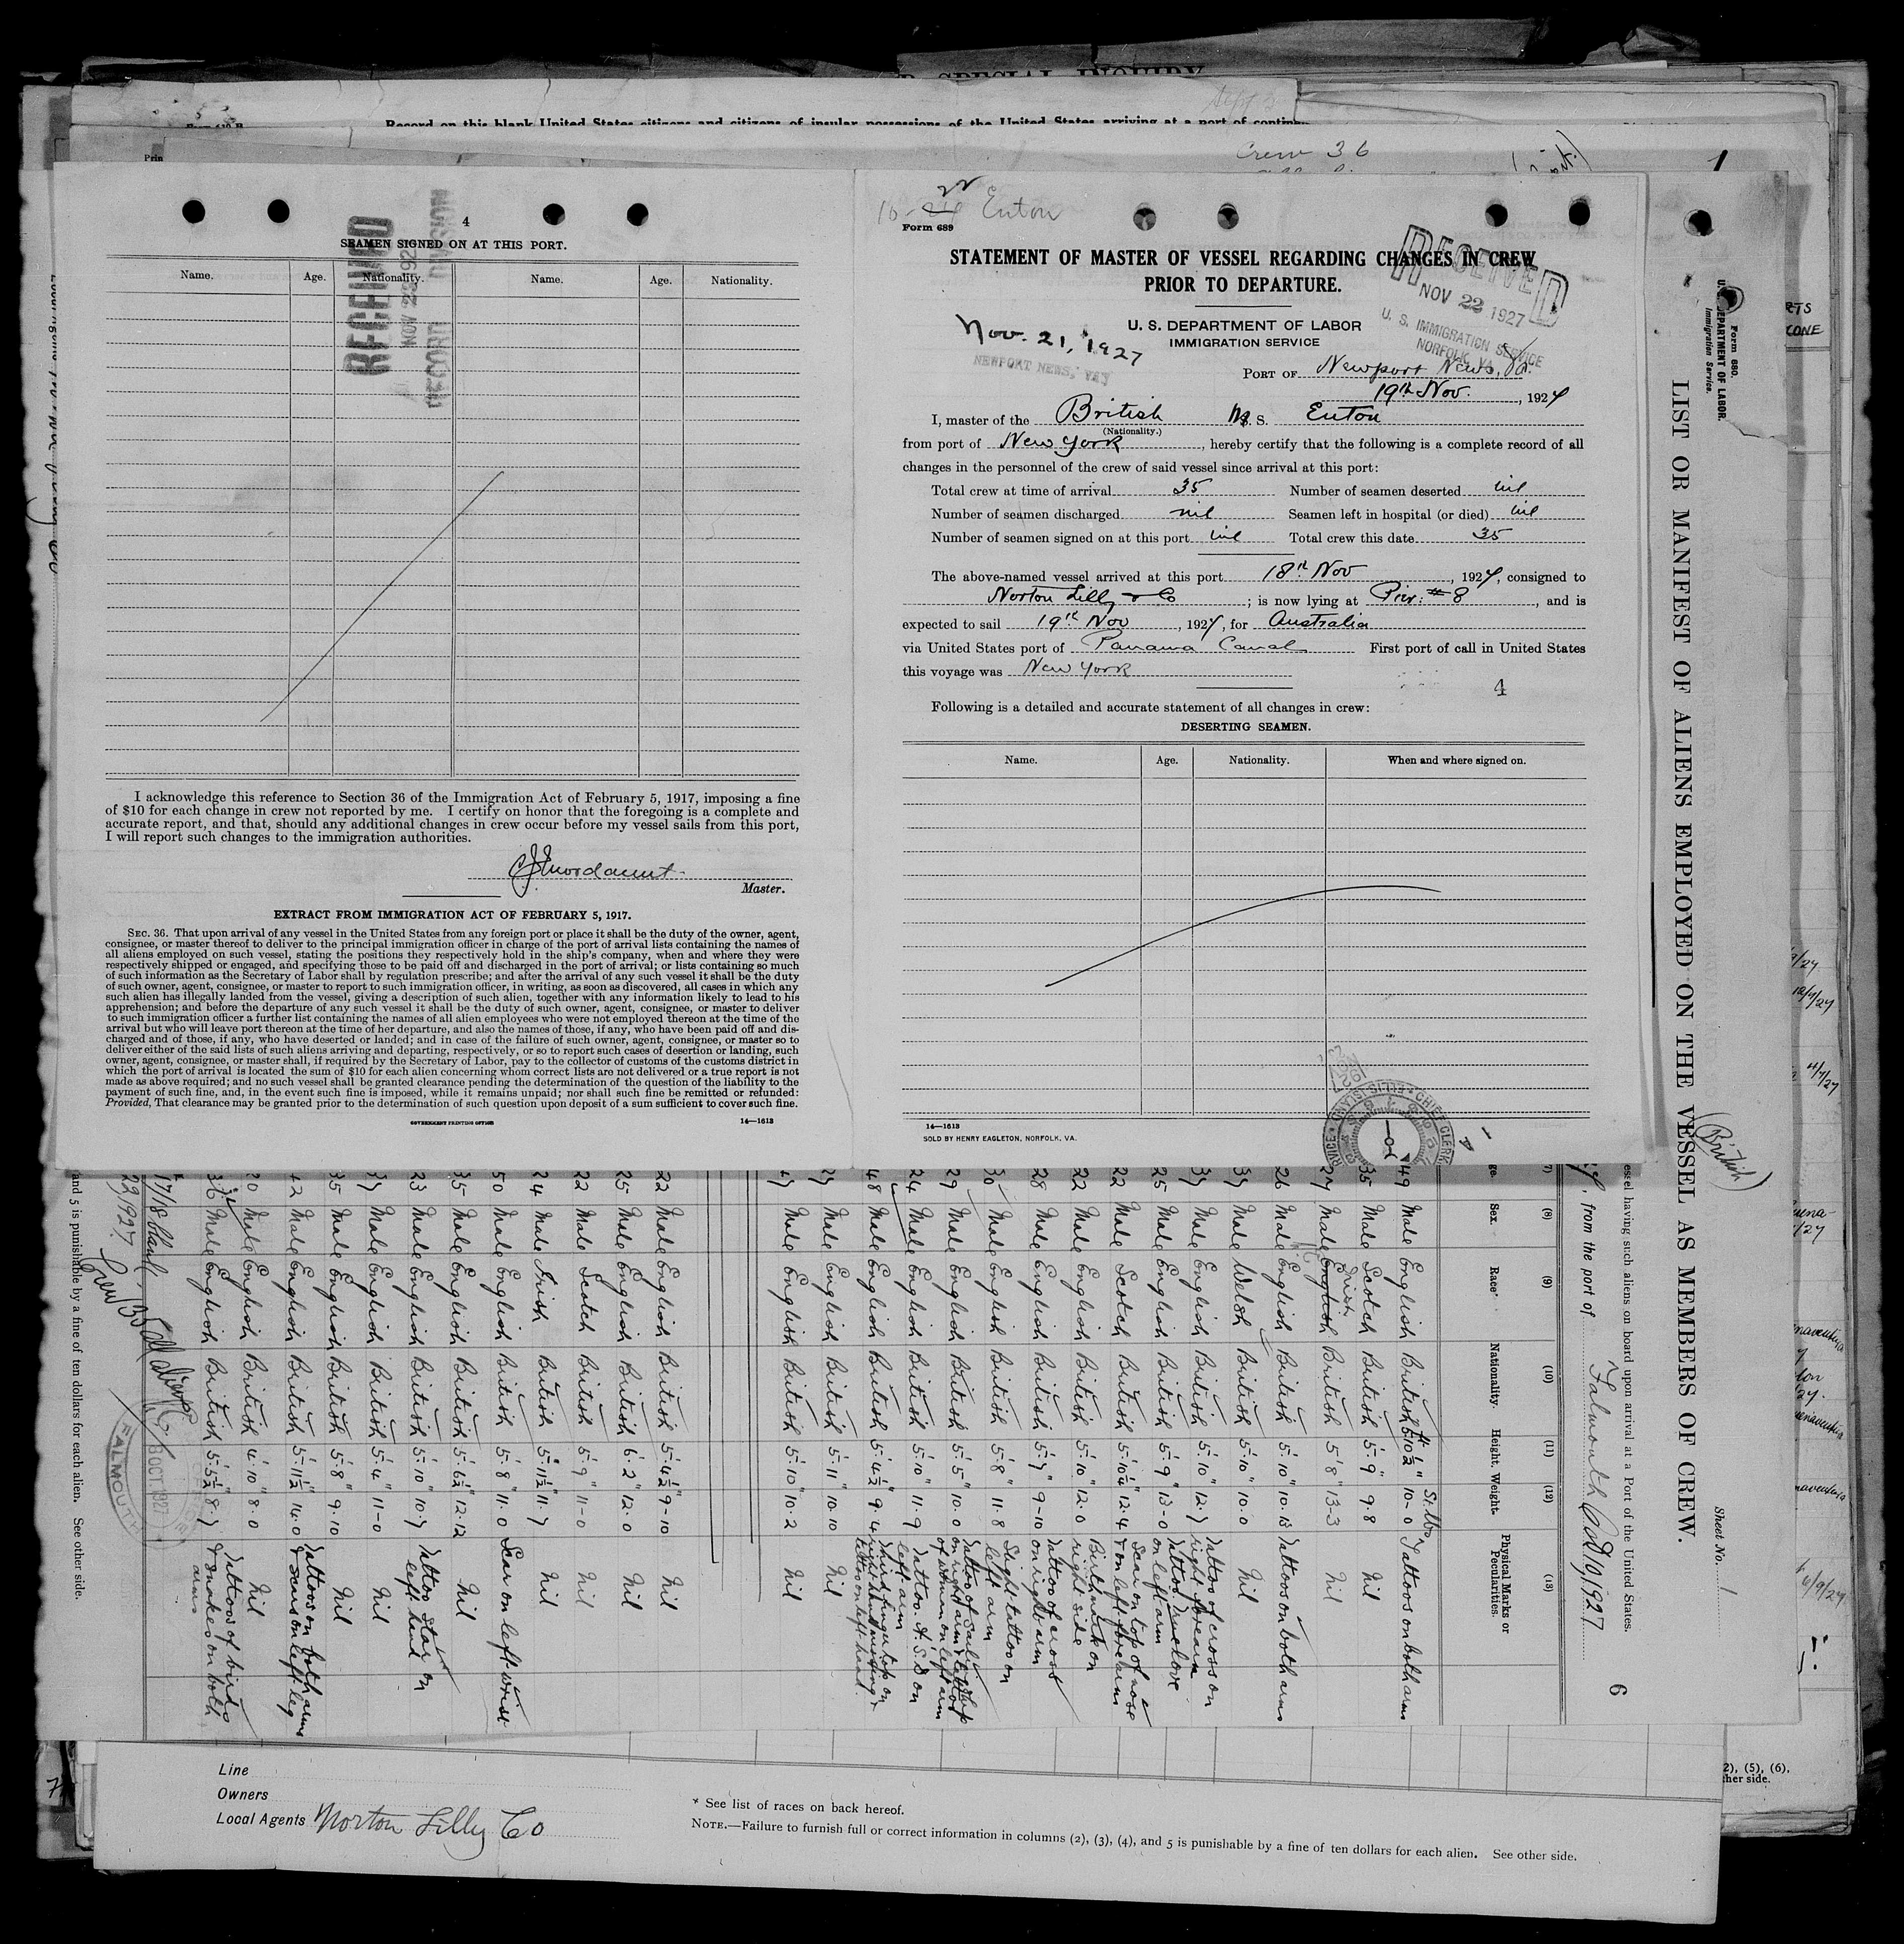 R SPECIAL INQUIRY
Record on this blank United States citizens and citizens of insular possessions of the United States arriving at a port of
Crew 36
1
4
SEAMEN SIGNED ON AT THIS PORT.
Name. Age. Nationality. Name. Age. Nationality.
RECEIVED
RECORD DIVISION
I acknowledge this reference to Section 36 of the Immigration Act of February 5, 1917, imposing a fine
of $10 for each change in crew not reported by me. I certify on honor that the foregoing is a complete and
accurate report, and that, should any additional changes in crew occur before my vessel sails from this port,
I will report such changes to the immigration authorities.
Master.
EXTRACT FROM IMMIGRATION ACT OF FEBRUARY 5, 1917.
SEC. 36. That upon arrival of any vessel in the United States from any foreign port or place it shall be the duty of the owner, agent,
consignee, or master thereof to deliver to the principal immigration officer in charge of the port of arrival lists containing the names of
all aliens employed on such vessel, stating the positions they respectively hold in the ship's company, when and where they were
respectively shipped or engaged, and specifying those to be paid off and discharged in the port of arrival; or lists containing so much
of such information as the Secretary of Labor shall by regulation prescribe; and after the arrival of any such vessel it shall be the duty
of such owner, agent, consignee, or master to report to such immigration officer, in writing, as soon as discovered, all cases in which any
such alien has illegally landed from the vessel, giving a description of such alien, together with any information likely to lead to his
apprehension; and before the departure of any such vessel it shall be the duty of such owner, agent, consignee, or master to deliver
to such immigration officer a further list containing the names of all alien employees who were not employed thereon at the time of the
arrival but who will leave port thereon at the time of her departure, and also the names of those, if any, who have been paid off and dis-
charged and of those, if any, who have deserted or landed; and in case of the failure of such owner, agent, consignee, or master so to
deliver either of the said lists of such aliens arriving and departing, respectively, or so to report such cases of desertion or landing, such
owner, agent, consignee, or master shall, if required by the Secretary of Labor, pay to the collector of customs of the customs district in
which the port of arrival is located the sum of $10 for each alien concerning whom correct lists are not delivered or a true report is not
made as above required; and no such vessel shall be granted clearance pending the determination of the question of the liability to the
payment of such fine, and, in the event such fine is imposed, while it remains unpaid; nor shall such fine be remitted or refunded:
Provided, That clearance may be granted prior to the determination of such question upon deposit of a sum sufficient to cover such fine.
GOVERNMENT PRINTING OFFICE 14—1613
Euton
Form 689
STATEMENT OF MASTER OF VESSEL REGARDING CHANGES IN CREW
PRIOR TO DEPARTURE.
RECEIVED
NOV 22 1927
U. S. IMMIGRATION SERVICE
NORFOLK, VA.
Nov. 21, 1927
NEWPORT NEWS, VA.
U. S. DEPARTMENT OF LABOR
IMMIGRATION SERVICE
PORT OF Newport News, Va.
19th Nov. , 1927
I, master of the British M. S. Euton
(Nationality.)
from port of New York , hereby certify that the following is a complete record of all
changes in the personnel of the crew of said vessel since arrival at this port:
Total crew at time of arrival 35 Number of seamen deserted nil
Number of seamen discharged nil Seamen left in hospital (or died) nil
Number of seamen signed on at this port nil Total crew this date 35
The above-named vessel arrived at this port 18th Nov , 1927, consigned to
Norton Lilly & Co ; is now lying at Pier: #8 , and is
expected to sail 19th Nov , 1927, for Australia
via United States port of Panama Canal First port of call in United States
this voyage was New York
4
Following is a detailed and accurate statement of all changes in crew:
DESERTING SEAMEN.
Name. Age. Nationality. When and where signed on.
14—1613
SOLD BY HENRY EAGLETON, NORFOLK, VA.
Form 680.
U. S. DEPARTMENT OF LABOR.
Immigration Service.
LIST OR MANIFEST OF ALIENS EMPLOYED ON THE VESSEL AS MEMBERS OF CREW.
(British)
Sheet No. 1
essel having such aliens on board upon arrival at a Port of the United States.
, from the port of Falmouth Oct 19 1927
6
(9) (10) (11) (12) (13)
Sex. Race* Nationality. Height. Weight. Physical Marks or Peculiarities.
49 Male English British 5-10½ 10-0 Tattoos on both arms
35 Male Scotch British 5-9 9-8 Nil
27 Male English Irish British 5-8 13-3 Nil
26 Male English British 5-10 10-13 Tattoos on both arms
37 Male Welsh British 5-10 10.0 Nil
37 Male English British 5-10 12.7 Tattoo of cross on right forearm
25 Male English British 5-9 13-0 Tattoo true love on left arm
22 Male Scotch British 5-10½ 12.4 Scar on top of nose & on left forearm
22 Male English British 5-10 12.0 Birthmark on right side
28 Male English British 5-7 9-10 Tattoo of cross on right arm
30 Male English British 5-8 11.8 Slight tattoo on left arm
29 Male English British 5-5 10.0 Tattoo of sailing ship on right arm of woman on left arm
24 Male English British 5-10 11.9 Tattoo A.S.D on left arm
48 Male English British 5-4½ 9.4 Third finger top on right hand missing & tattoo on left hand
27 Male English British 5-11 10.10 Nil
47 Male English British 5-10 10.2 Nil
22 Male English British 5-4½ 9-10 Nil
25 Male English British 6-2 12.0 Nil
22 Male Scotch British 5-9 11-0 Nil
24 Male Irish British 5-11½ 11.7 Nil
50 Male English British 5-8 11.0 Scar on left wrist
35 Male English British 5-6½ 12.12 Nil
23 Male English British 5-10 10.7 Tattoo star on left hand
37 Male English British 5-4 11-0 Nil
35 Male English British 5-8 9.10 Nil
42 Male English British 5-11½ 14.0 Tattoos on both arms & scars on left leg
20 Male English British 4-10 8.0 Nil
36 Male English British 5-5½ 8.7 Tattoos of birds & snakes on both arms
Crew 35 all aliens
FALMOUTH
8 OCT. 1927
and 5 is punishable by a fine of ten dollars for each alien. See other side.
Line
Owners
Local Agents Norton Lilly Co
* See list of races on back hereof.
NOTE.—Failure to furnish full or correct information in columns (2), (3), (4), and 5 is punishable by a fine of ten dollars for each alien. See other side.
2), (5), (6).
ther side.